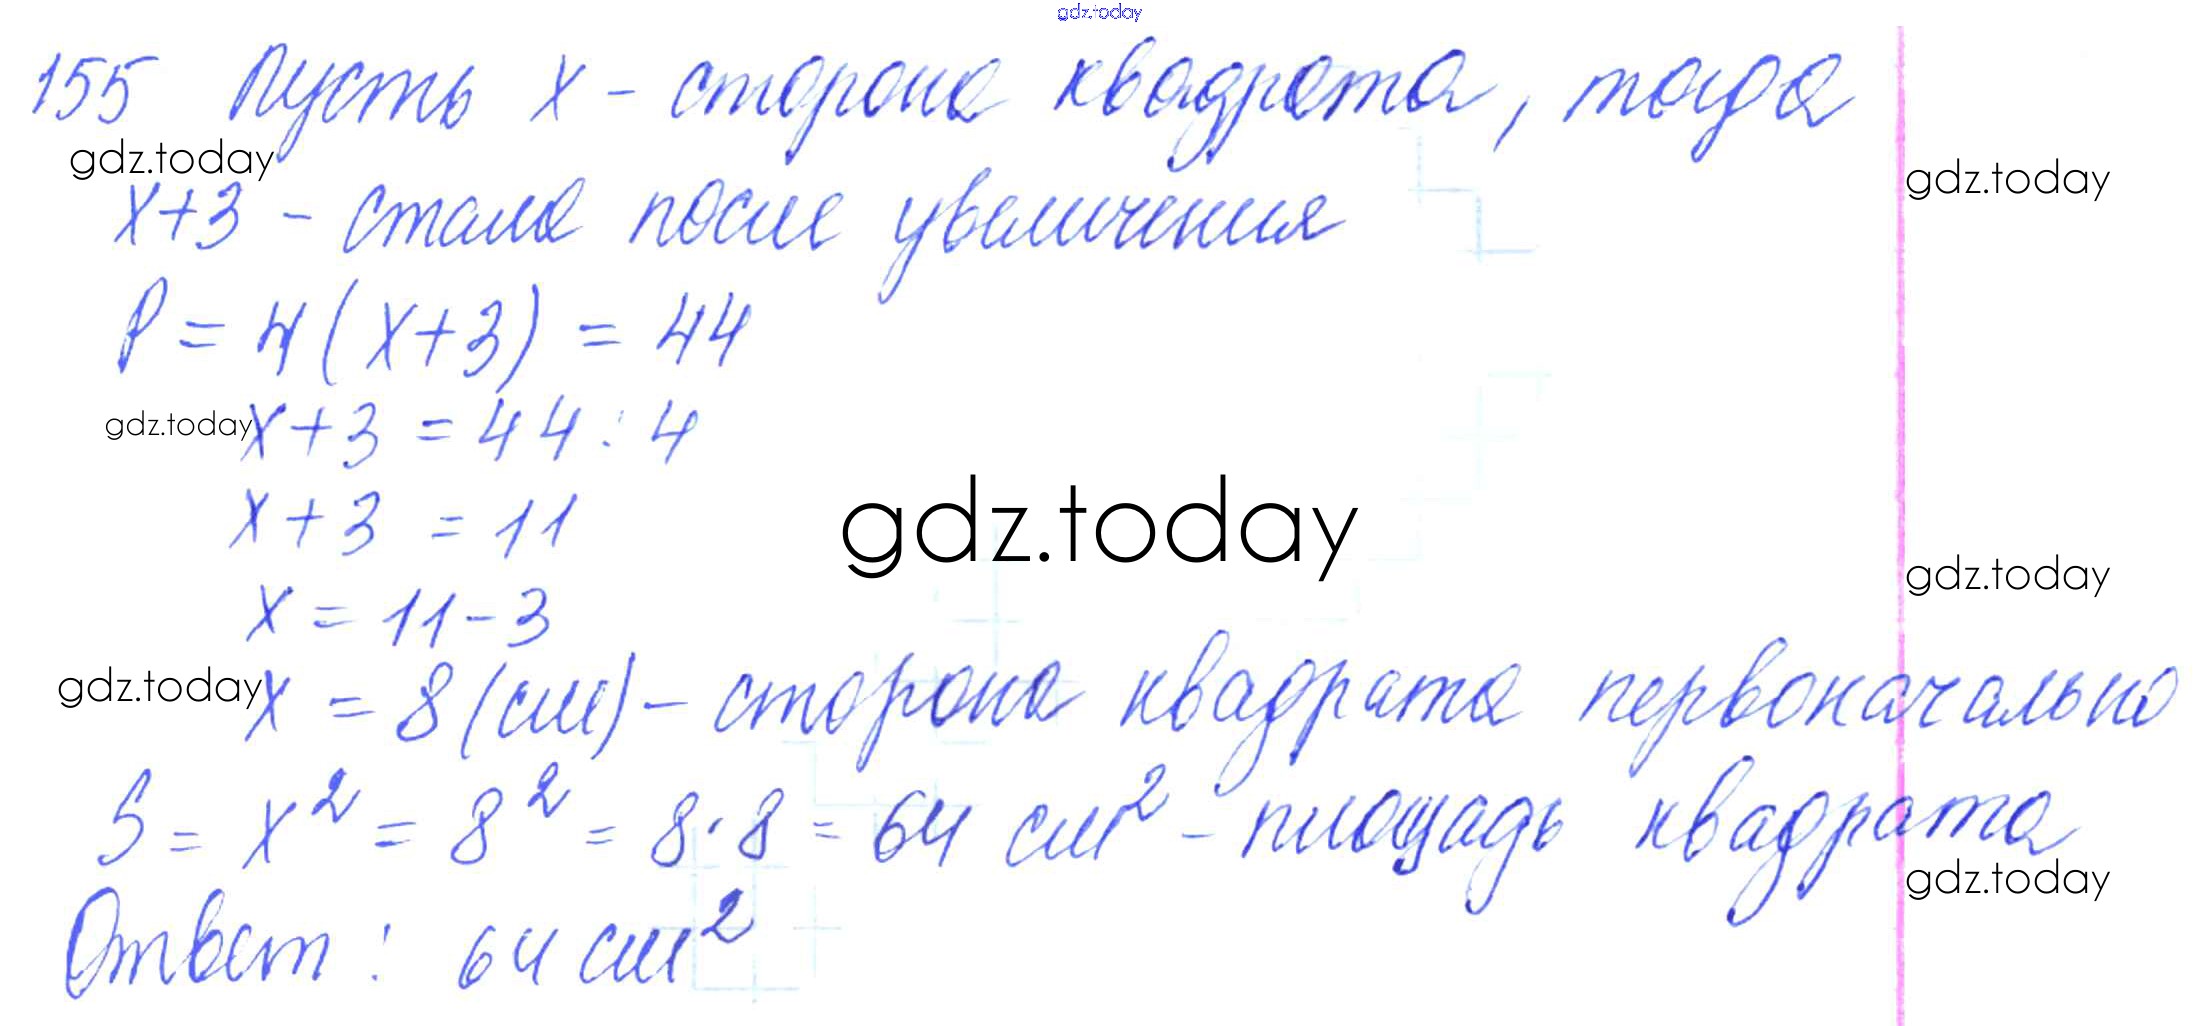 gdz.today
155 Пусть x - сторона квадрата, тогда
gdz.today
gdz.today
x+3 - стала после увеличения
P = 4(x+3) = 44
gdz.today
x+3 = 44:4
gdz.today
x+3 = 11
gdz.today
x = 11-3
gdz.today
x = 8(см) - сторона квадрата первоначально
S = x² = 8² = 8·8 = 64 см² - площадь квадрата
gdz.today
Ответ: 64 см²